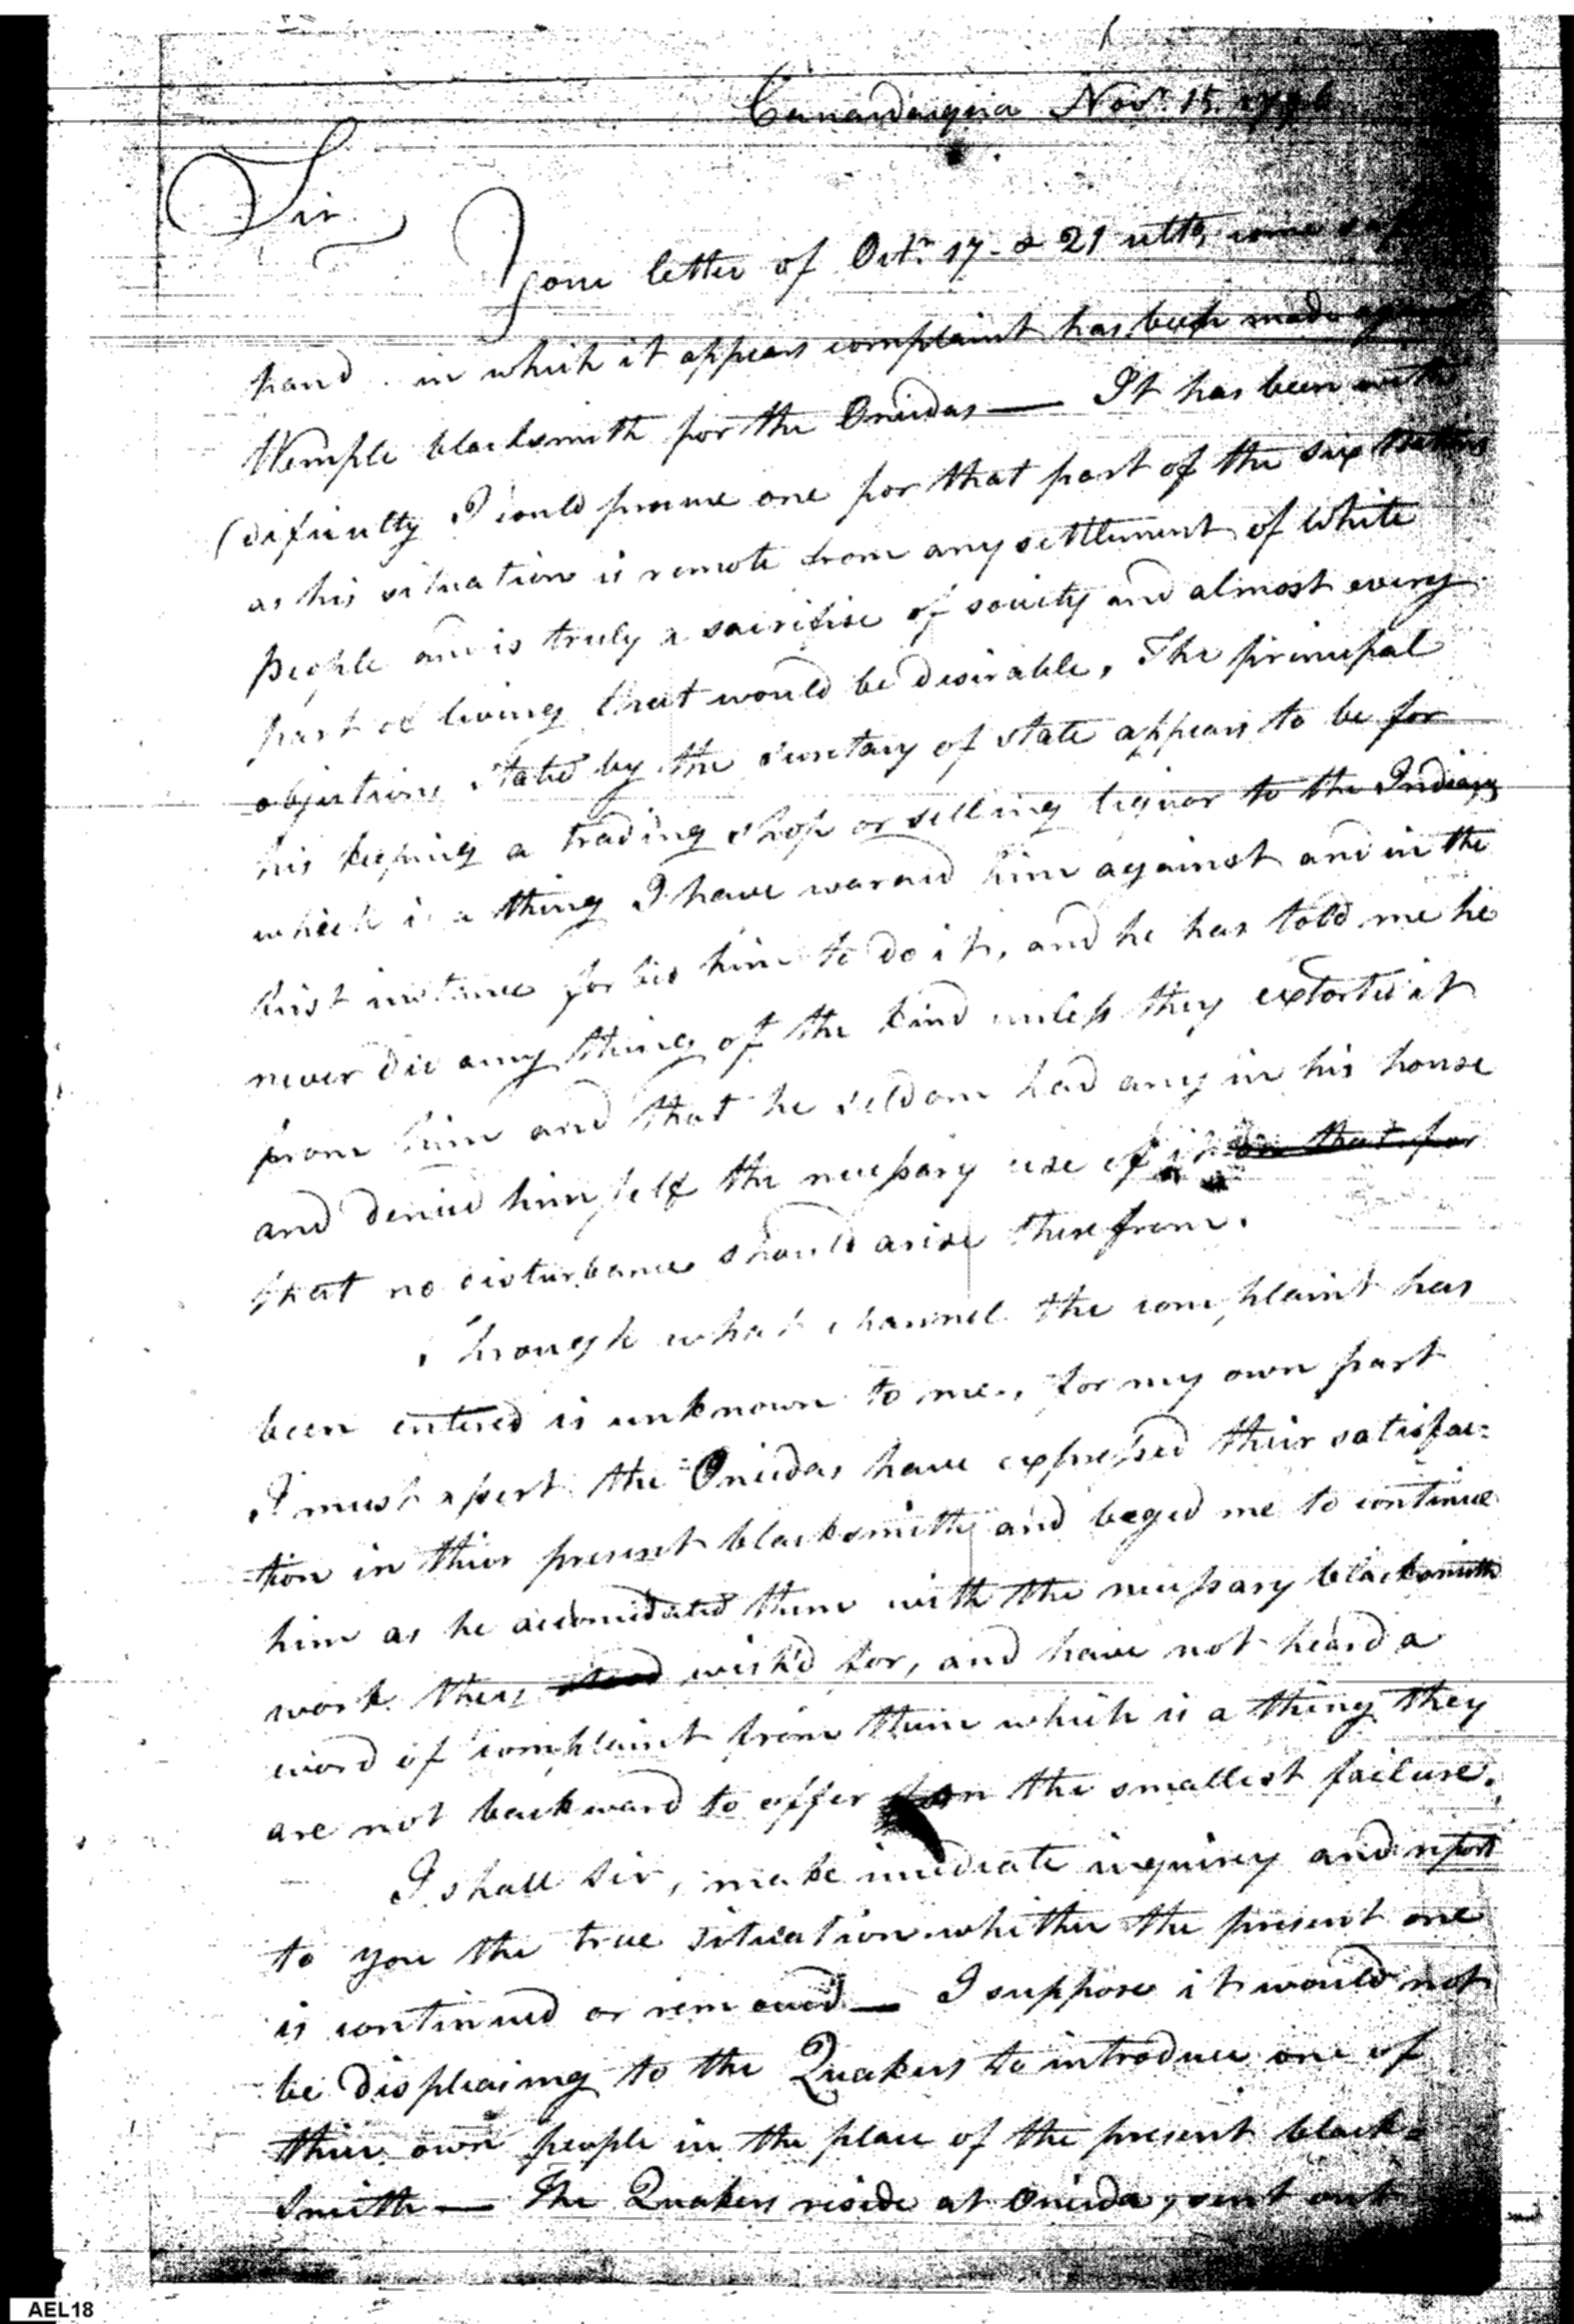 Canandaigua Novr. 15. 1796
Sir
Your letter of Octr. 17 - & 21 ulto, come safe
hand . in which it appears complaint has been made against
Wemple blacksmith for the Oneidas — It has been with
dificulty I could procure one for that part of the six
as his situation is remote from any settlement of White
people and is truly a sacrifise of society and almost every
part of living that would be desirable, The principal
objections stated by the Secretary of State appears to be for
his keeping a trading shop or selling liquor to the Indians
which is a thing I have warned him against and in the
first instance forbid him to do it, and he has told me he
never did any thing of the kind unless they extorted it
from him and that he seldom had any in his house
and denied himself the necessary use of it so that for
that no disturbance should arise therefrom.
Through what channel the complaint has
been entered is unknown to me, for my own part
I must assert the Oneidas have expressed their satisfac-
tion in thier present blacksmith and beged me to continue
him as he accomidated them with the necessary blacksmith
work they wish'd for, and have not heard a
word of complaint from them which is a thing they
are not backward to offer on the smallest failure.
I shall Sir, make imediate inquirey and report
to you the true situation whether the present one
is continued or removed — I suppose it would not
be displeasing to the Quakers to introduce one of
thier own people in the place of the present black-
Smith — The Quakers reside at Oneida, sent out
AEL18